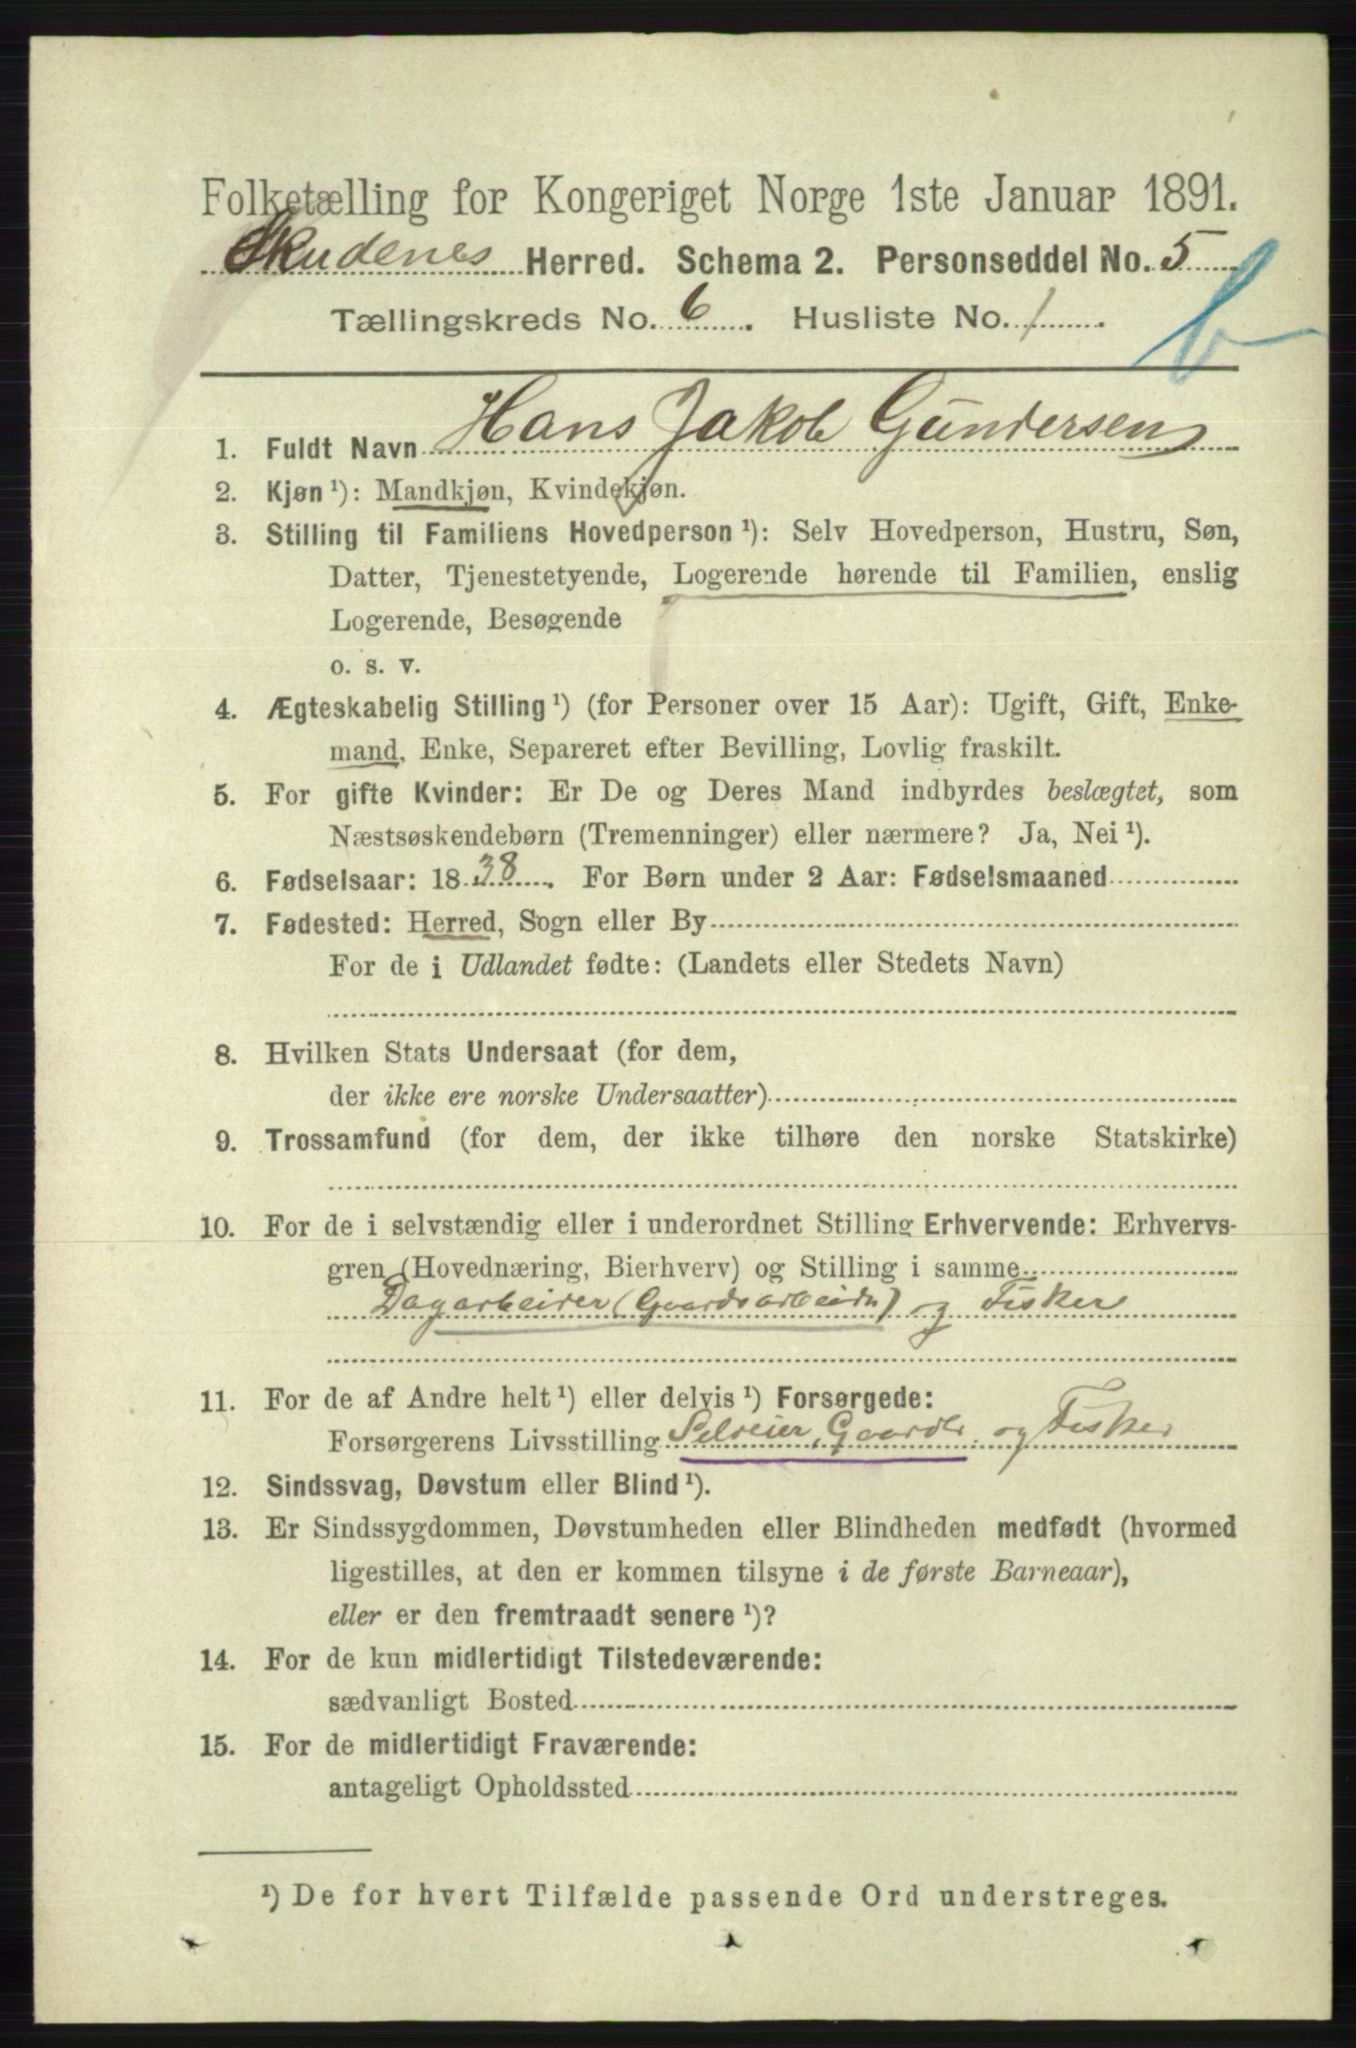 Folketælling for Kongeriget Norge 1ste Januar 1891.
Skudenes Herred. Schema 2. Personseddel No. 5
Tællingskreds No. 6. Husliste No. 1.
b
1. Fuldt Navn Hans Jakob Gundersen
2. Kjøn ¹): Mandkjøn, Kvindekjøn.
3. Stilling til Familiens Hovedperson ¹): Selv Hovedperson, Hustru, Søn,
Datter, Tjenestetyende, Logerende hørende til Familien, enslig
Logerende, Besøgende
o. s. v.
4. Ægteskabelig Stilling ¹) (for Personer over 15 Aar): Ugift, Gift, Enke-
mand, Enke, Separeret efter Bevilling, Lovlig fraskilt.
5. For gifte Kvinder: Er De og Deres Mand indbyrdes beslægtet, som
Næstsøskendebørn (Tremenninger) eller nærmere? Ja, Nei ¹).
6. Fødselsaar: 1838. For Børn under 2 Aar: Fødselsmaaned
7. Fødested: Herred, Sogn eller By
For de i Udlandet fødte: (Landets eller Stedets Navn)
8. Hvilken Stats Undersaat (for dem,
der ikke ere norske Undersaatter)
9. Trossamfund (for dem, der ikke tilhøre den norske Statskirke)
10. For de i selvstændig eller i underordnet Stilling Erhvervende: Erhvervs-
gren (Hovednæring, Bierhverv) og Stilling i samme
Dagarbeider (Gaardsarbeider) og Fisker
11. For de af Andre helt ¹) eller delvis ¹) Forsørgede:
Forsørgerens Livsstilling Selveier, Gaardb. og Fisker
12. Sindssvag, Døvstum eller Blind ¹).
13. Er Sindssygdommen, Døvstumheden eller Blindheden medfødt (hvormed
ligestilles, at den er kommen tilsyne i de første Barneaar),
eller er den fremtraadt senere ¹)?
14. For de kun midlertidigt Tilstedeværende:
sædvanligt Bosted
15. For de midlertidigt Fraværende:
antageligt Opholdssted
¹) De for hvert Tilfælde passende Ord understreges.